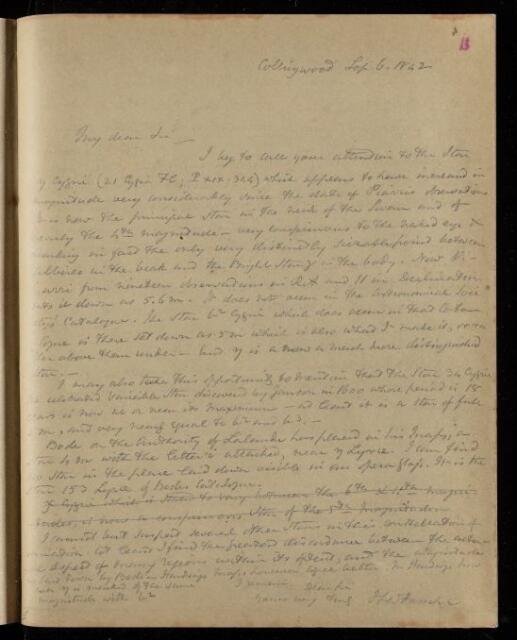 13
Collingwood Sep 6. 1842
My dear Sir
I beg to call your attention to the Star
η Cygni (21 Cygni FC; P XIX. 344) which appears to have increased in
magnitude very considerably since the date of Piazzi's observations
is now the principal Star in the neck of the Swan and of
nearly the 4th magnitude - very conspicuous to the naked eye &
in fact the only very distinctly visible point between
in the beak and the Bright Stars in the body. Now Pi-
azzi from nineteen observations in RA and 11 in Declination,
sets it down as 5.6 m. It does not occur in the Astronomical Soci-
ety's Catalogue. The Star b2 Cygni which does occur in that Cata-
logue is there set down as 5 m which is also what I make it, ra-
ther above than under - and η is a much more distinguished
Star.
I may also take this opportunity to mention that the Star 34 Cygni
the celebrated Variable Star discovered by Janson in 1600 whose period is 18
years is now at or near its maximum - at least it is a star of full
m, and very nearly equal to b2 and b3.
Bode on the authority of Lalande has placed in his Maps, a
Star 4 m with the letter attached, near η Lyrae. I can find
no Star in the place laid down visible in an opera glass. It is the
Star 153 Lyrae of Bode's Catalogue.
χ Cygni which is stated to vary between the 6th & 11th magni-
tudes, is now a conspicuous Star of the 5th magnitude
I cannot but suspect several other Stars in this constellation of
variation at least I find the greatest discordance between the actu-
al aspect of many regions within its extent, and the magnitudes
laid down by Bode. Harding's maps, however agree better. In Harding's
η is marked of the same
magnitude with b2
I remain
Dear Sir
Yours very truly